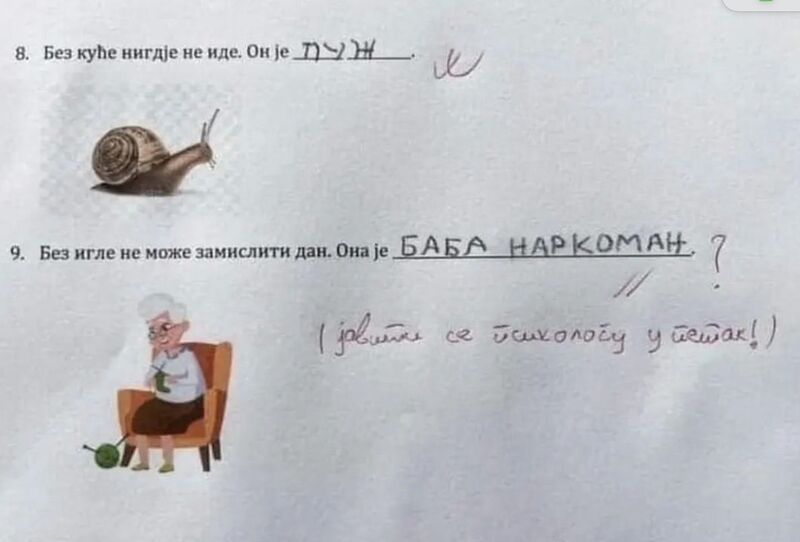 8. Без куће нигдје не иде. Он је ПУЖ.
9. Без игле не може замислити дан. Она је БАБА НАРКОМАН. ?
(јавити се психологу у петак!)